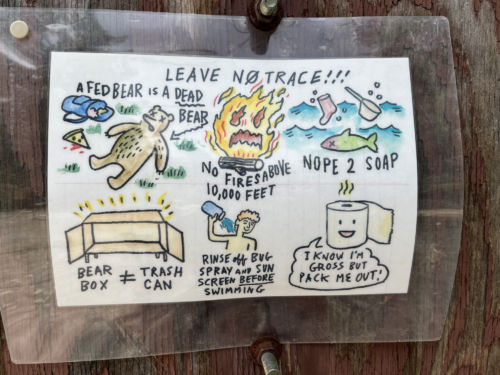 LEAVE NØ TRACE!!!
A FED BEAR IS A DEAD
BEAR
NO FIRES ABOVE
10,000 FEET
NOPE 2 SOAP
BEAR
BOX ≠ TRASH
CAN
RINSE off BUG
SPRAY AND SUN
SCREEN BEFORE
SWIMMING
I KNOW I'M
GROSS BUT
PACK ME OUT!